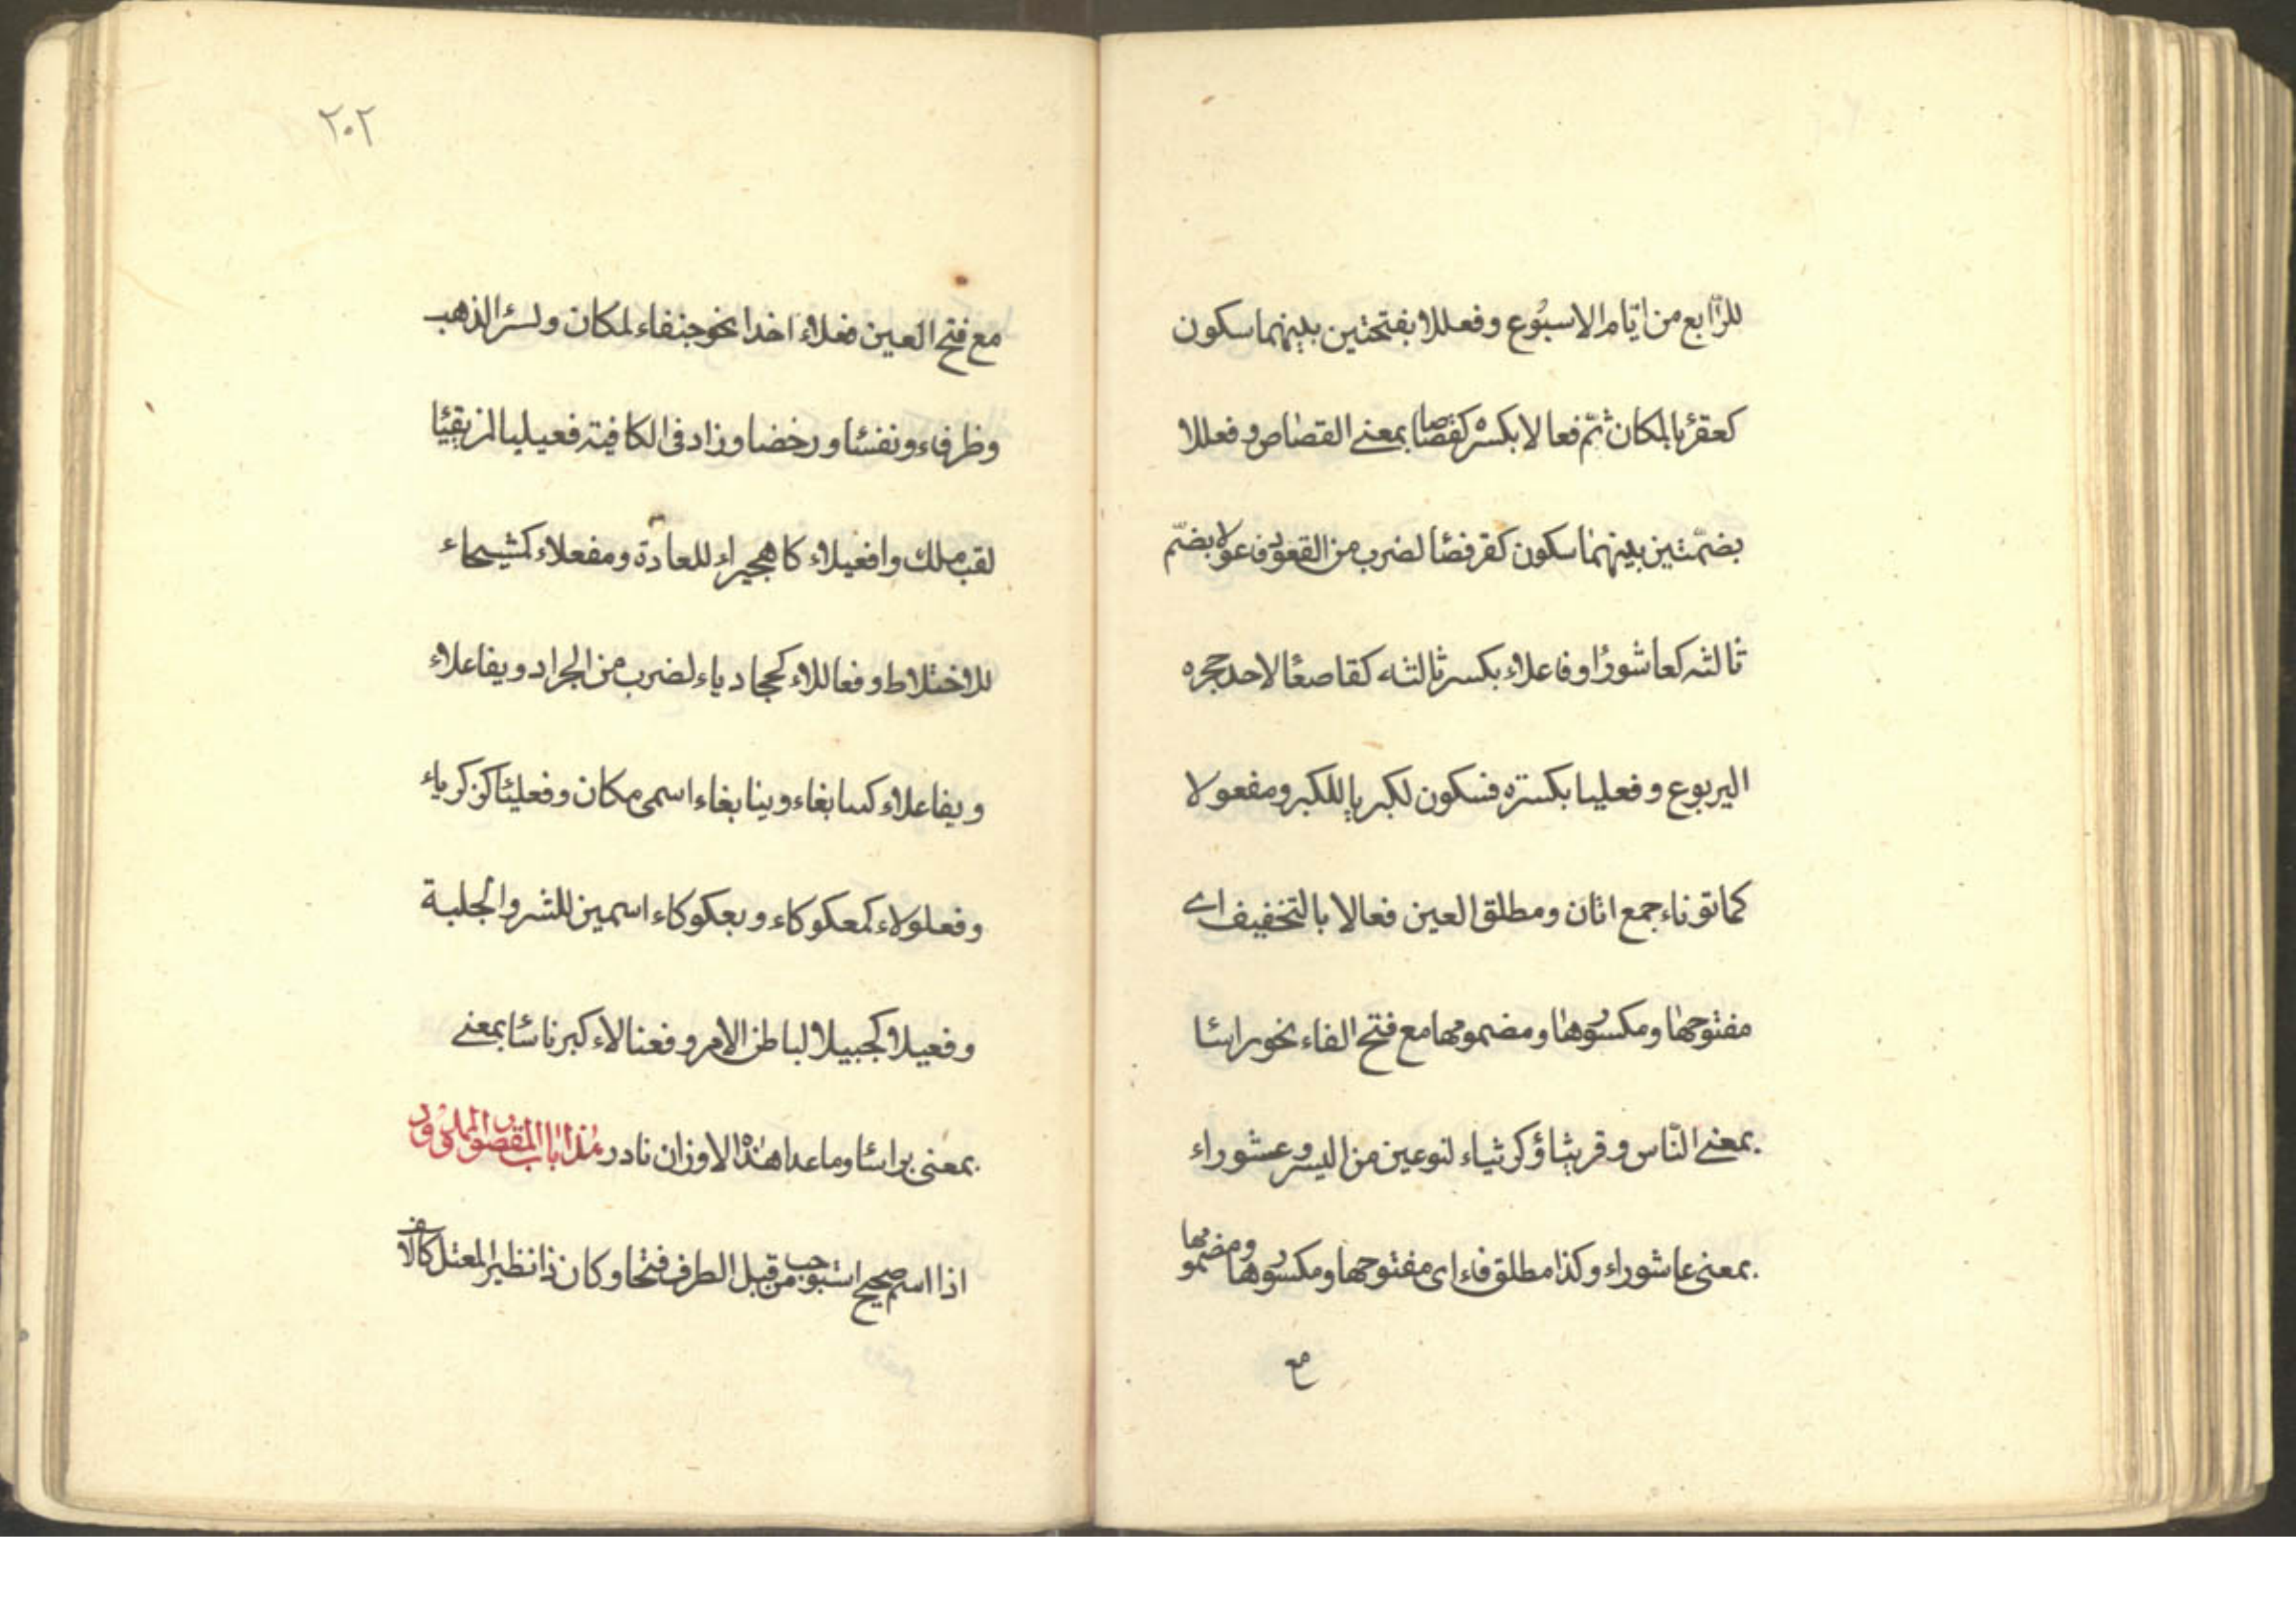 للرّابع من ايّام الاسبُوع وفعللا بفتحتين بينهما سكون
كعقربا لمكان ثمّ فعالا بكسره كقصاصا بمعنى القصاص وفعللا
بضمّتين بينهما سكون كقرفصا لضرب من القعود وفاعولا بضمّ
ثالثه كعاشورا وفاعلاء بكسر ثالثه كقاصعا لاحد حجره
اليربوع وفعليا بكسره فسكون لكبريا للكبر ومفعولا
كماتوناء جمع اتان ومطلق العين فعالا بالتخفيف اى
مفتوحها ومكسورها ومضمومها مع فتح الفاء نحو براسا
بمعنى النّاس وقريثا وكريثاء لنوعين من البسر وعشوراء
بمعنى عاشوراء وكذا مطلق فاء اى مفتوحها ومكسورها ومضمومها
مع
٢٠٢
مع فتح العين فعلاء اخذا نحو جنفاء لمكان
وظرفاء ونفسا ورخضا وزاد فى الكافيته فعيليا لمزيقيا
لقب ملك وافعيلاء كاهجيراء للعادة ومفعلاء كشيحاء
للاختلاط وفعاللاء كحجادياء لضرب من الجراد ويفاعلاء
ويفاعلاء كينابغاء وينابغاء اسمى مكان وفعليا كزكرياء
وفعلولاء كمعكوكاء وبعكوكاء اسمين للشر والجلبة
وفعيلا كجبيلا لباطن الامر وفعنالاء كبرناسا بمعنى
بمعنى براسا وما عدا هذا الاوزان نادر هذا باب المقصور والممدود
اذا اسم صحيح استوجب من قبل الطرف فتحا وكان ذا نظير المعتل كالاسف